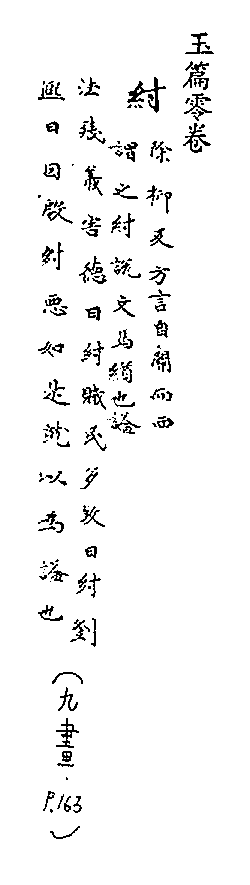 玉篇零卷
紂
除柳反方言自關而西
謂之紂說文馬緧也謚
法殘義害德曰紂賊民多致曰紂劉
熙曰因殷紂惡如是就以為謚也(九畫.P.163)